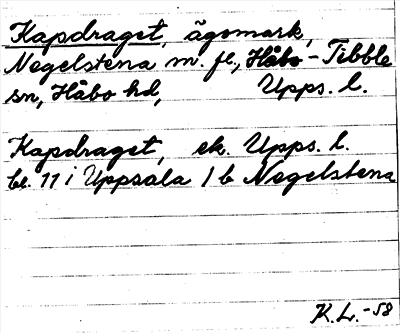 Kapdraget, ägomark,
Negelstena m. fl., Håbo-Tibble
sn, Håbo hd, Upps. l.
Kapdraget, ek. Upps. l.
bl. 11 i Uppsala 1 b Negelstena
K.L.-58